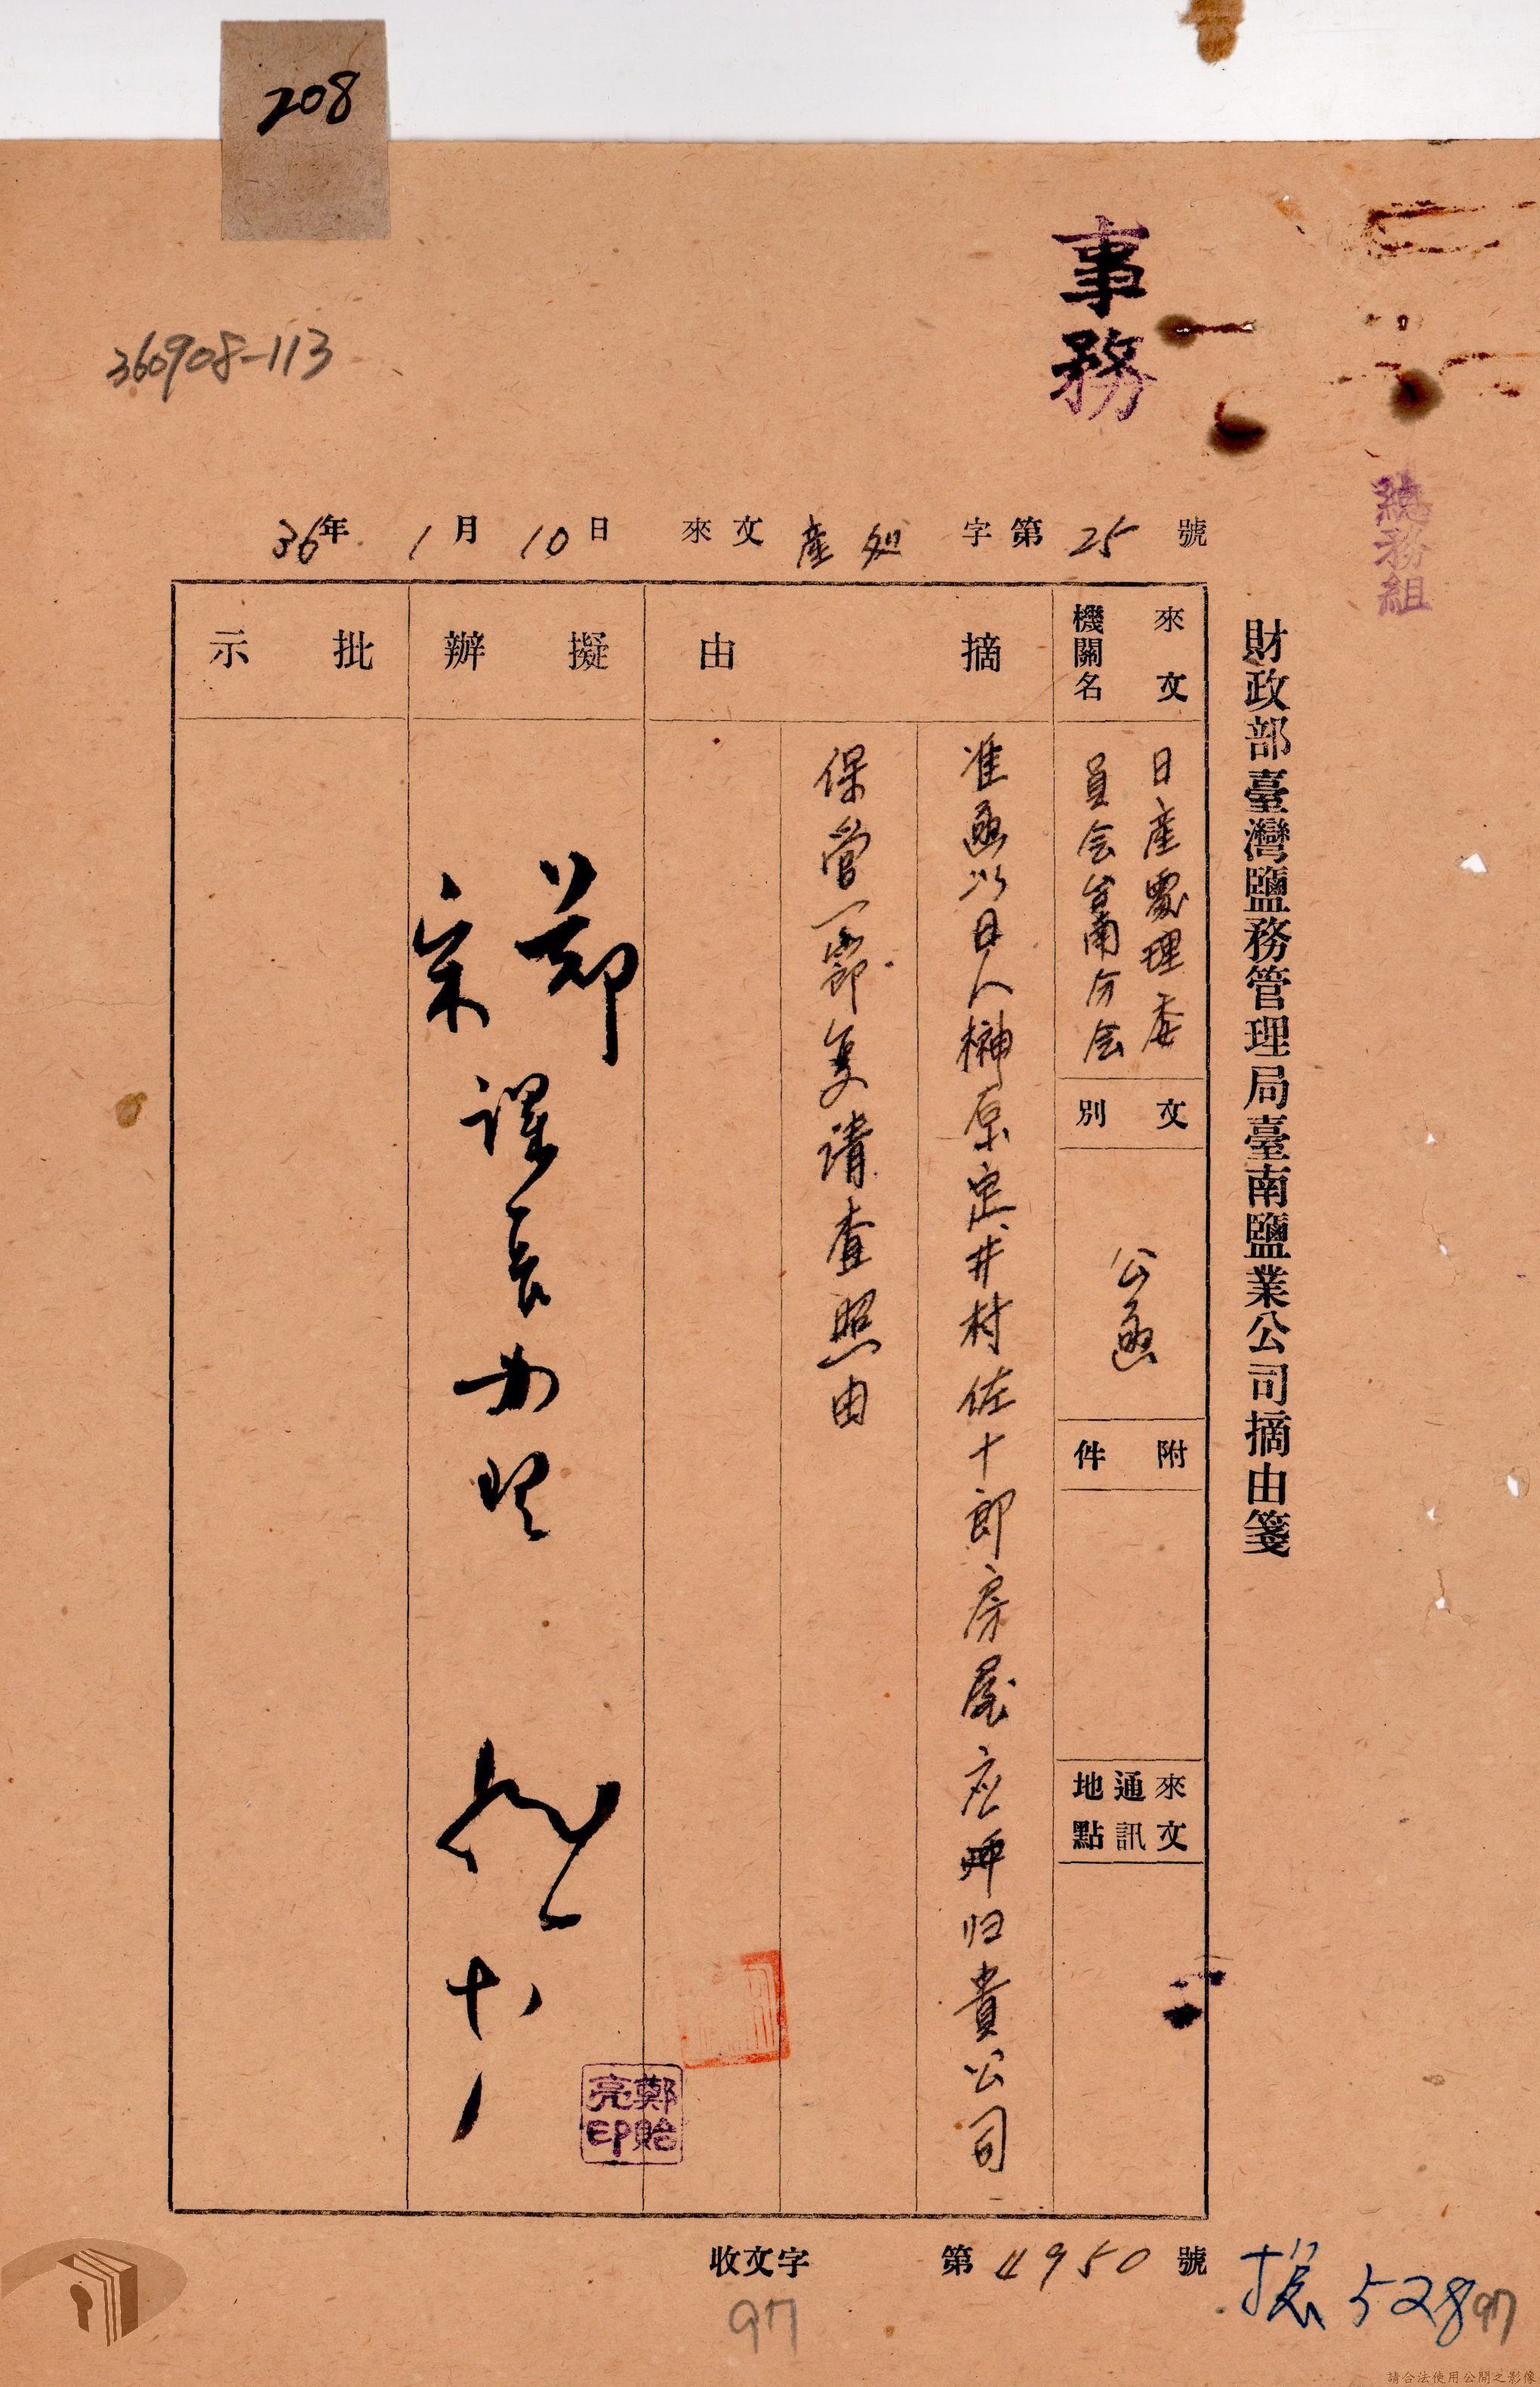 208
360908-113
事務
總務組
財政部臺灣鹽務管理局臺南鹽業公司摘由箋
36年 1月 10日 來文 產処 字第 25 號
來文機關名
日產處理委
員会台南分会
文別
公函
附件
來文通訊地點
摘由
准函以日人榊原定井村佐十郎房屋应归貴公司
保管一節复请查照由
擬辦
鄭
課長办理
批示
鄭貽亮印
收文字 第 4950 號
97
528
97
請合法使用公開之影像